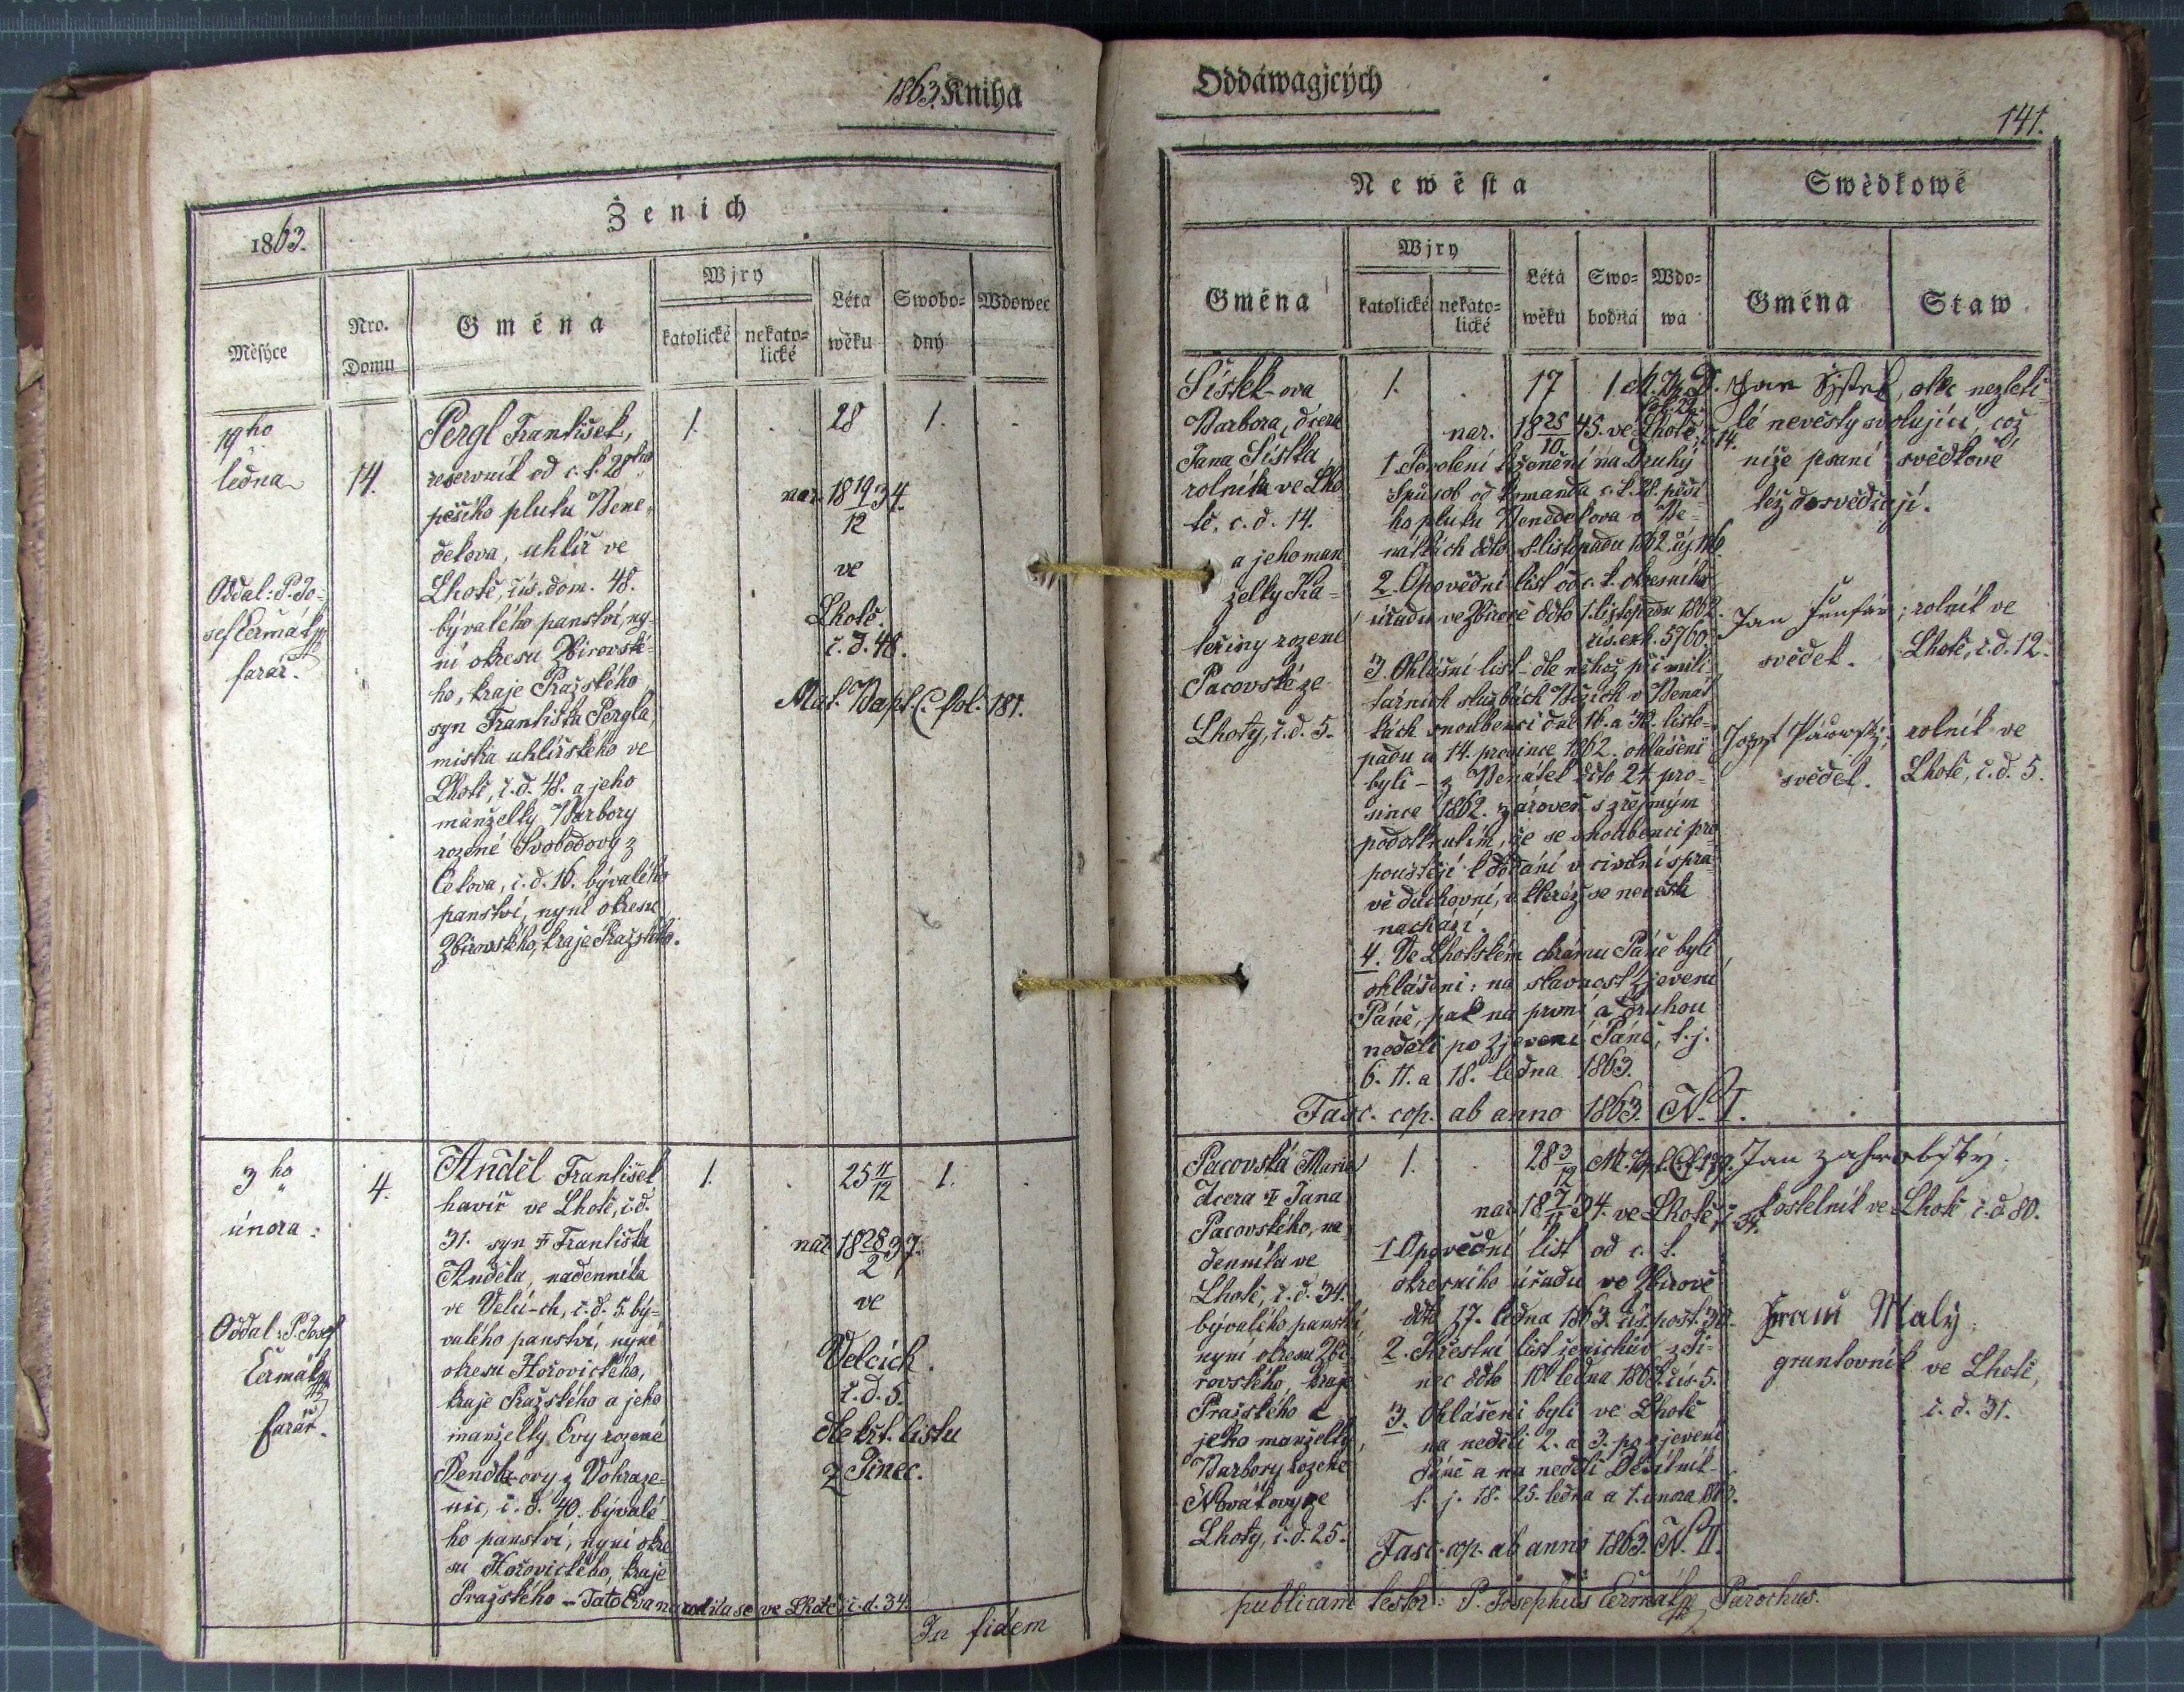 1863. Kniha
Ženich
1863.
Měsýce
Nro. Domu
Gména
Wjry
katolické
nekatolické
Léta wěku
Swobodný
Wdowec
19ho
ledna
14.
Pergl František,
reservník od c. k. 28ho
pěšího pluku Bene-
dekova, uhlíř ve
Lhotě, čís. dom. 48.
bývalého panství, ny-
ní okresu Zbirovské-
ho, kraje Pražského,
syn Františka Pergla
mistra uhlířského ve
Lhotě, č. d. 48. a jeho
manželky Barbory
rozené Svobodovy z
Cekova, č. d. 16. bývalého
panství, nyní okresu
Zbirovského, kraje Pražského.
1.
.
28
1.
.
nar. 18 19/12 34.
ve
Lhotě.
č. d. 48.
Mat. Bapt. C. fol. 181.
Oddal: P. Jo-
sef Čermák
farář.
3ho
února:
4.
Anděl František
havíř ve Lhotě, č. d.
31. syn † Františka
Anděla, nádenníka
ve Velcí-ch, č. d. 5. bý-
valého panství, nyní
okresu Hořovického,
kraje Pražského a jeho
manželky Evy rozené
z Vohraze-
nic, č. d. 40. bývalé-
ho panství, nyní okre-
su Hořovického, kraje
Pražského - Tato Eva narodila se ve Lhotě č. d. 34.
1.
.
25 11/12
1.
.
nar. 18 28/2 37.
ve
Velcích.
č. d. 5.
dle křt. listu
z Jinec.
Oddal: P. Josef
Čermák
farář.
In fidem
Oddáwagjcých
141.
Newěsta
Swědkowé
Gména
Wjry
katolické
nekatolické
Léta wěku
Swobodná
Wdowa
Gména
Staw
Šístek-ova
Barbora, dcera
Jana Šístka,
rolníka ve Lho-
tě, č. d. 14.
a jeho man-
želky Ka-
teřiny rozené
Pacovské ze
Lhoty, č. d. 5.
1.
.
17
1.
nar. 18 25/10 45. ve Lhotě, č. 14.
1. Povolení k ženění na Druhý
spůsob od komanda c. k. 28. pěší-
ho pluku Benedekova v Be-
nátkách ddto 8. listopadu 1862.
2. Opovědní list od c. k. okresního
úřadu ve Zbirově ddto 1. listopadu 1862.
čís. exh. 5760.
3. Ohlášní list - dle něhož při mili-
tárních službách Božích v Benát-
kách snoubenci dne 16. a 30. listo-
padu a 14. prosince 1862. ohlášeni
byli - z Benátek ddto 24. pro-
since 1862. zároveň s zřejmým
podotknutím, že se snoubenci pro-
pouštějí k oddání v civilní sprá-
vě duchovní, v kteréž se nevěsta
nachází.
4. Ve Lhotském chrámu Páně byli
ohlášeni: na slavnost Zjevení
Páně, pak na první a druhou
neděli po Zjevení Páně, t. j.
6. 11. a 18. ledna 1863.
Fasc. cop. ab anno 1863. N. I.
Jan Šístek, otec nezleti-
lé nevěsty svolující, což
níže psaní svědkové
též dosvědčují.
Jan ; rolník ve
svědek. Lhotě, č. d. 12.
Josef Pácowský; rolník ve
svědek. Lhotě, č. d. 5.
Pacovská Marie
dcera † Jana
Pacovského, ná-
denníka ve
Lhotě, č. d. 34.
bývalého panství
nyní okresu Zbi-
rovského, kraje
Pražského a
jeho manželky,
Barbory rozené
Novákovy ze
Lhoty, č. d. 25.
1.
.
28 3/12
nar. 18 7/11 34. ve Lhotě č. 34.
1. Opovědní list od c. k.
okresního úřadu ve Zbirově
ddto 17. ledna 1863.
2. Křestní list ženichův z Ji-
nec ddto 10. ledna 1863. čís. 5.
3. Ohlášeni byli ve Lhotě
na neděli 2. a 3. po zjevení
Páně a na neděli Devítník
t. j. 18. 25. ledna a 1. února 863.
Fasc. cop. ab anno 1863. N. II.
Jan zahrobský,
kostelník ve Lhotě č. d. 80.
Malý,
gruntovník ve Lhotě,
č. d. 31.
publicam testor: P. Josephus Čermák Parochus.